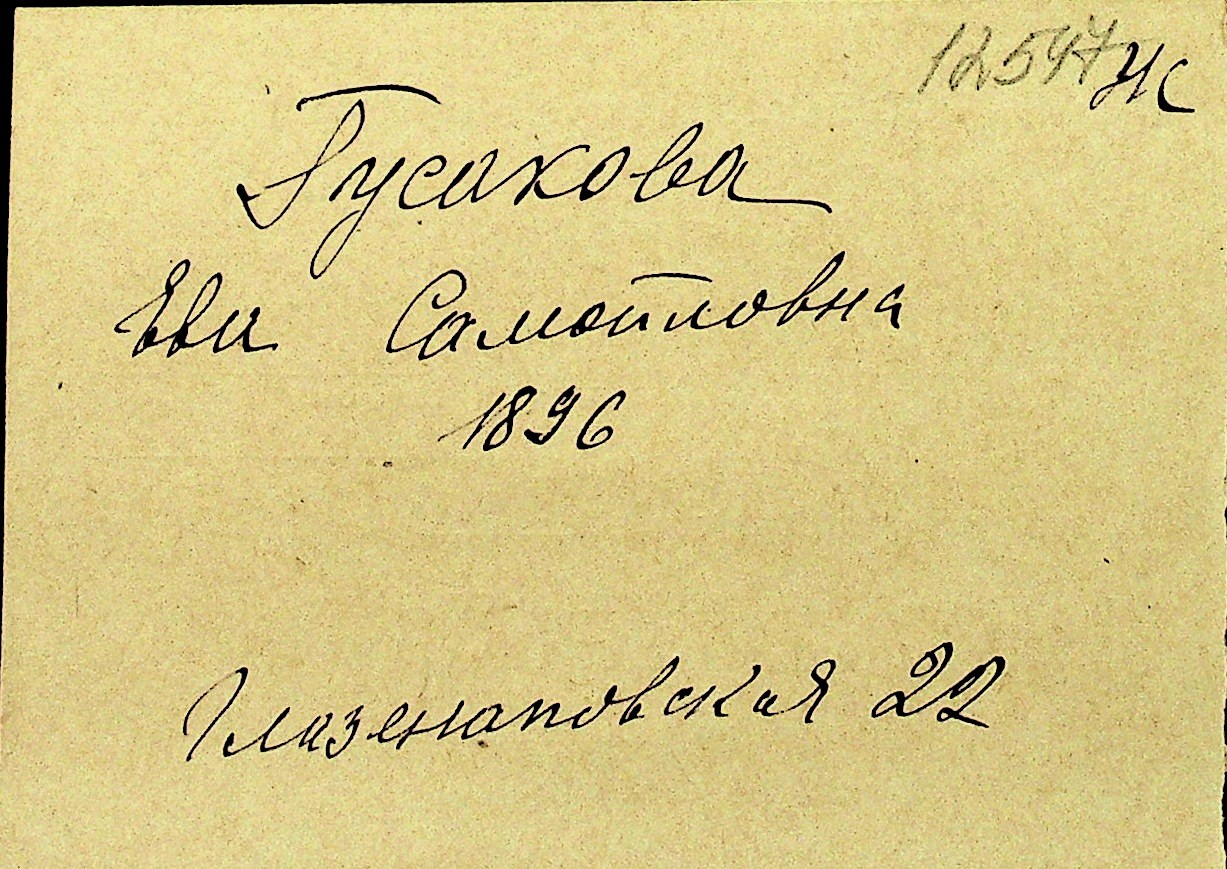 12547 ИС
Гусакова
Ева Самойловна
1896
Глазенаповская 22